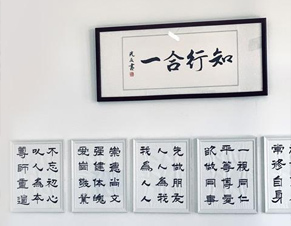 知行合一
常修自身
一視同仁
平等尊愛
欲做同事
先做朋友
人人為我
我為人人
崇德尚文
強健体魄
愛崗敬業
不忘初心
以人為本
尊師重道